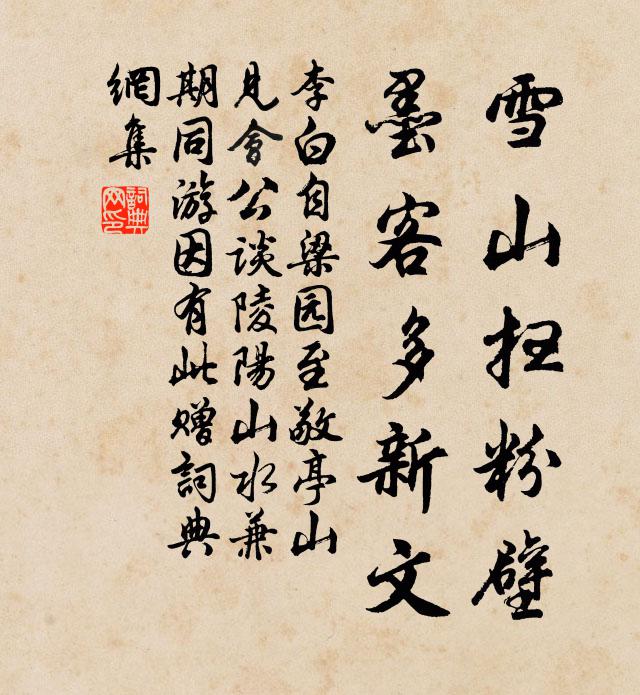 雪山扫粉壁
墨客多新文
李白自梁园至敬亭山
见會公谈陵陽山水兼
期同游因有此赠詞典
網集
詞典
网印